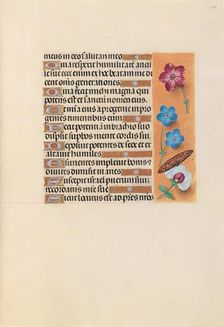 meus in deo salutari meo
Quia respexit humilitatē ancil
le sue ecce enim ex hoc beatam me di
cent omnes generationes
Quia fecit michi magna qui
potens est et sanctum nomen eius
Et misericordia eius a progenie in pro
genies timentibus eum
Fecit potentiā in brachio suo
dispersit superbos mente cordis sui
Deposuit potentes de sede et ex
altavit humiles
Esurientes implevit bonis et
divites dimisit inanes
Suscepit israel puerum suum
recordatus misericordie sue
Sicut locutus est ad patres nros